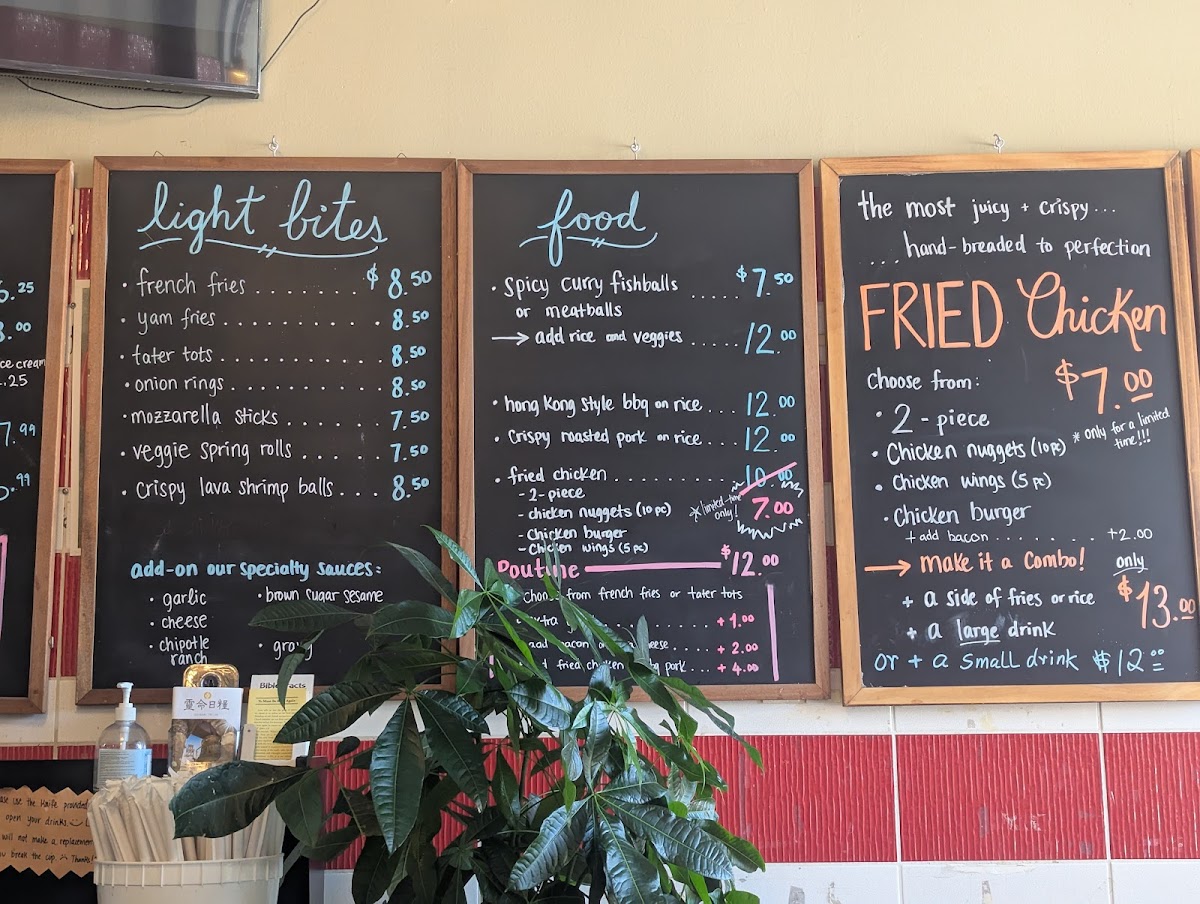 .25
.00
ice cream
.25
7.99
.99
light bites
• french fries ........ $8.50
• yam fries ............ 8.50
• tater tots ............ 8.50
• onion rings ........... 8.50
• mozzarella sticks ...... 7.50
• veggie spring rolls ..... 7.50
• crispy lava shrimp balls ... 8.50
add-on our specialty sauces:
• garlic
• cheese
• chipotle
ranch
• brown sugar sesame
food
• spicy curry fishballs ..... $7.50
or meatballs
→ add rice and veggies ..... 12.00
• hong kong style bbq on rice ... 12.00
• crispy roasted pork on rice ... 12.00
• fried chicken ............ 10.00
- 2-piece
- chicken nuggets (10 pc)
- chicken burger
- chicken wings (5 pc)
* limited-time
only!
7.00
Poutine $12.00
from french fries or tater tots
+ 1.00
bacon ... + 2.00
fried chicken pork ... + 4.00
the most juicy + crispy...
...hand-breaded to perfection
FRIED Chicken
$7.00
choose from:
• 2-piece
• chicken nuggets (10 pc)
• chicken wings (5 pc)
• chicken burger
+ add bacon .......... +2.00
* only for a limited
time!!!
→ make it a combo!
+ a side of fries or rice
+ a large drink
only
$13.00
or + a small drink $12.00
靈命日糧
use the knife provided
open your drinks.
will not make a replacement
you break the cup. Thanks!